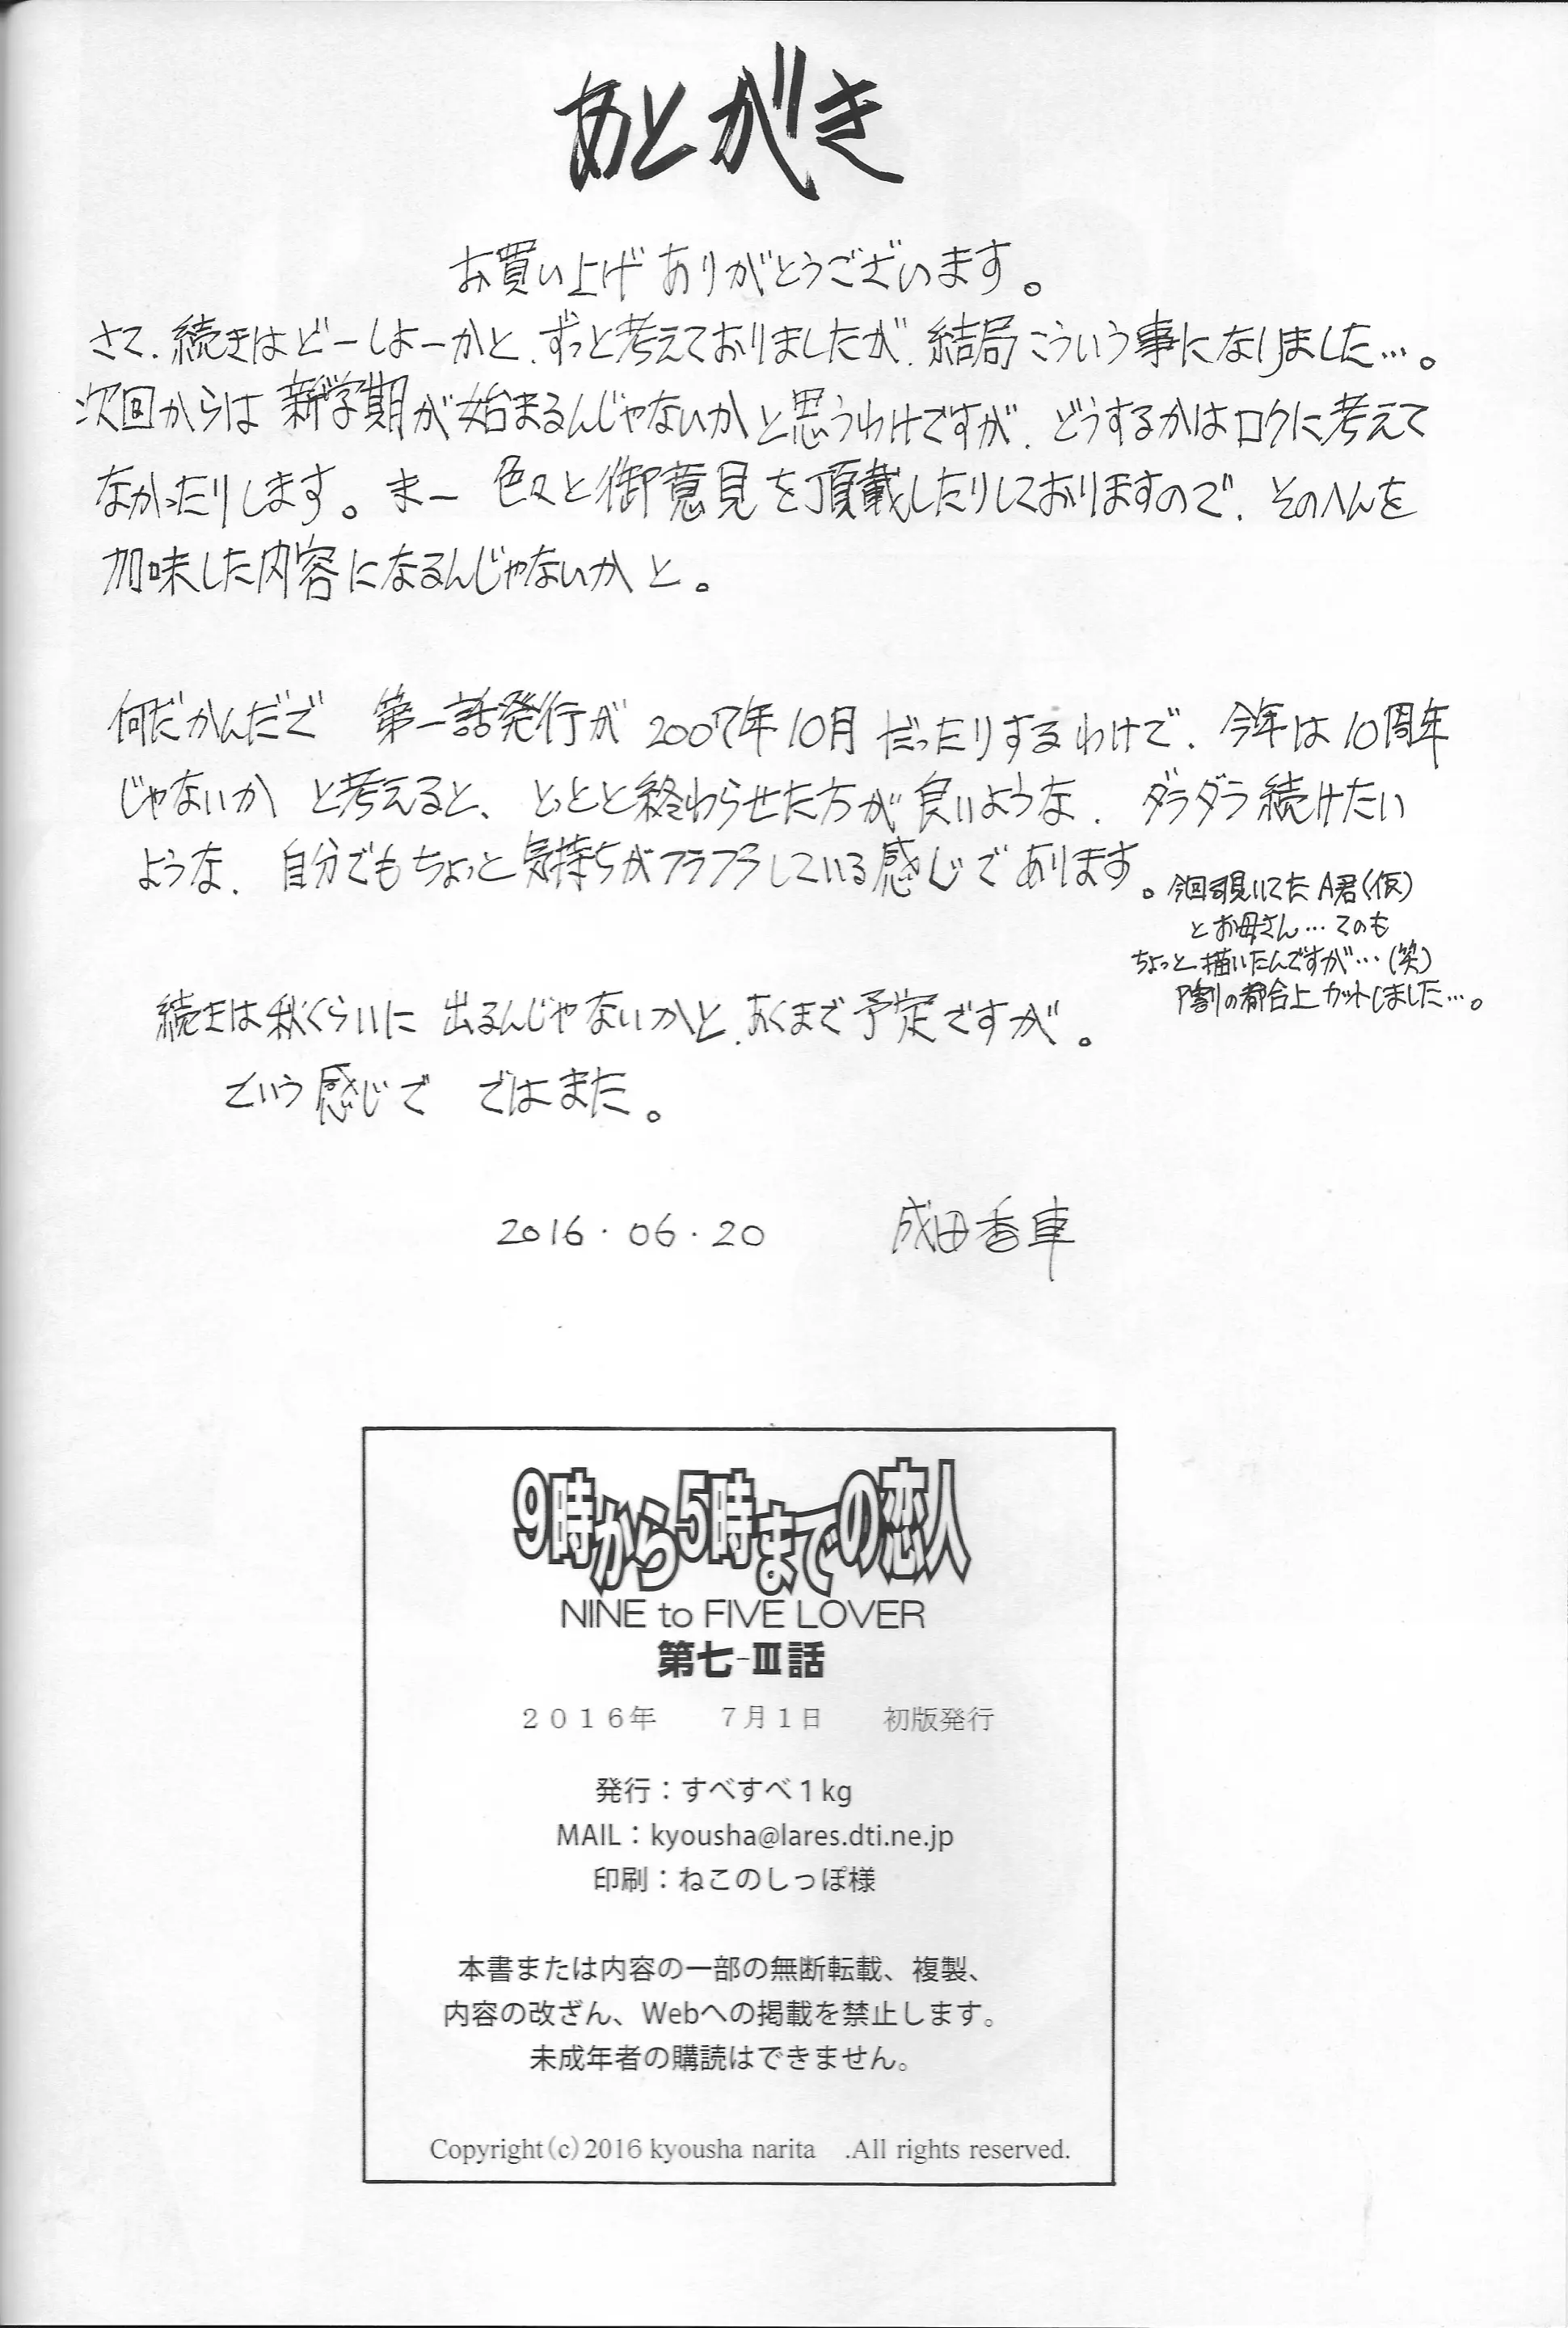 あとがき
お買い上げ ありがとうございます。
さて、続きはどーしよーかと、ずっと考えておりましたが、結局こういう事になりました…。
次回からは新学期が始まるんじゃないかと思うわけですが、どうするかはロクに考えて
なかったりします。まー 色々と御意見を頂戴したりしておりますので、そのへんを
加味した内容になるんじゃないかと。
何だかんだで 第一話発行が 2007年10月 だったりするわけで、今年は10周年
じゃないか と考えると、とっとと終わらせた方が良いような、ダラダラ続けたい
ような、自分でもちょっと気持ちがフラフラしている感じであります。
今回覗いてたA君(仮)
とお母さん…てのも
ちょっと描いたんですが…(笑)
P割の都合上カットしました…。
続きは秋くらいに 出るんじゃないかと、あくまで予定ですが。
という感じで ではまた。
2016.06.20 成田香車
9時から5時までの恋人
NINE to FIVE LOVER
第七-Ⅲ話
2016年 7月1日 初版発行
発行：すべすべ1kg
MAIL：kyousha@lares.dti.ne.jp
印刷：ねこのしっぽ様
本書または内容の一部の無断転載、複製、
内容の改ざん、Webへの掲載を禁止します。
未成年者の購読はできません。
Copyright(c)2016 kyousha narita .All rights reserved.